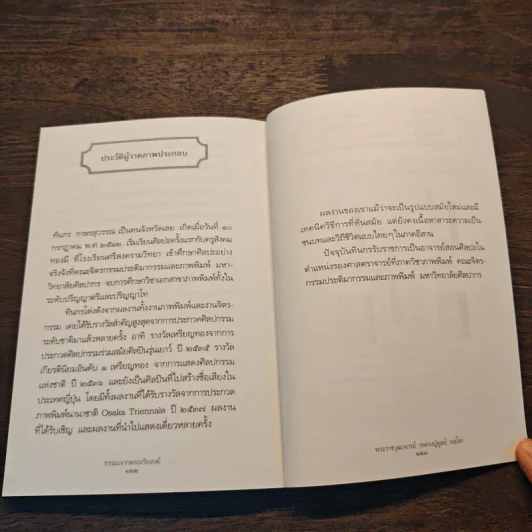 ประวัติผู้วาดภาพประกอบ
ทินกร กาษรสุวรรณ เป็นคนจังหวัดเลย เกิดเมื่อวันที่ ๑๐
กรกฎาคม พ.ศ. เริ่มเรียนศิลปะครั้งแรกกับครูสังคม
ทองมี ที่โรงเรียนศรีสงครามวิทยา เข้าศึกษาศิลปะอย่าง
จริงจังที่คณะจิตรกรรมประติมากรรมและภาพพิมพ์ มหา-
วิทยาลัยศิลปากร จบการศึกษาวิชาเอกสาขาภาพพิมพ์ทั้งใน
ระดับปริญญาตรีและปริญญาโท
ทินกรโด่งดังจากผลงานทั้งงานภาพพิมพ์และงานจิตร-
กรรม โดยได้รับรางวัลสำคัญสูงสุดจากการประกวดศิลปกรรม
ระดับชาติมาแล้วหลายครั้ง อาทิ รางวัลเหรียญทองจากการ
ประกวดศิลปกรรมร่วมสมัยศิลปินรุ่นเยาว์ ปี ๒๕๓๕ รางวัล
เกียรตินิยมอันดับ ๑ เหรียญทอง จากการแสดงศิลปกรรม
แห่งชาติ ปี ๒๕๓๖ และยังเป็นศิลปินที่ไปสร้างชื่อเสียงใน
ประเทศญี่ปุ่น โดยมีทั้งผลงานที่ได้รับรางวัลจากการประกวด
ภาพพิมพ์นานาชาติ Osaka Triennale ปี ๒๕๓๗ ผลงาน
ที่ได้รับเชิญ และผลงานที่นำไปแสดงเดี่ยวหลายครั้ง
ธรรมะจากพระอริยสงฆ์
๑๒๒
ผลงานของเขาแม้ว่าจะเป็นรูปแบบสมัยใหม่และมี
เทคนิควิธีการที่ทันสมัย แต่ยังคงเนื้อหาสาระความเป็น
ชนบทและวิถีชีวิตแบบไทยๆ ในภาคอีสาน
ปัจจุบันทินกรรับราชการเป็นอาจารย์สอนศิลปะใน
ตำแหน่งรองศาสตราจารย์ที่ภาควิชาภาพพิมพ์ คณะจิตร-
กรรมประติมากรรมและภาพพิมพ์ มหาวิทยาลัยศิลปากร
พระราชวุฒาจารย์ (หลวงปู่ดูลย์ อตุโล)
๑๒๓